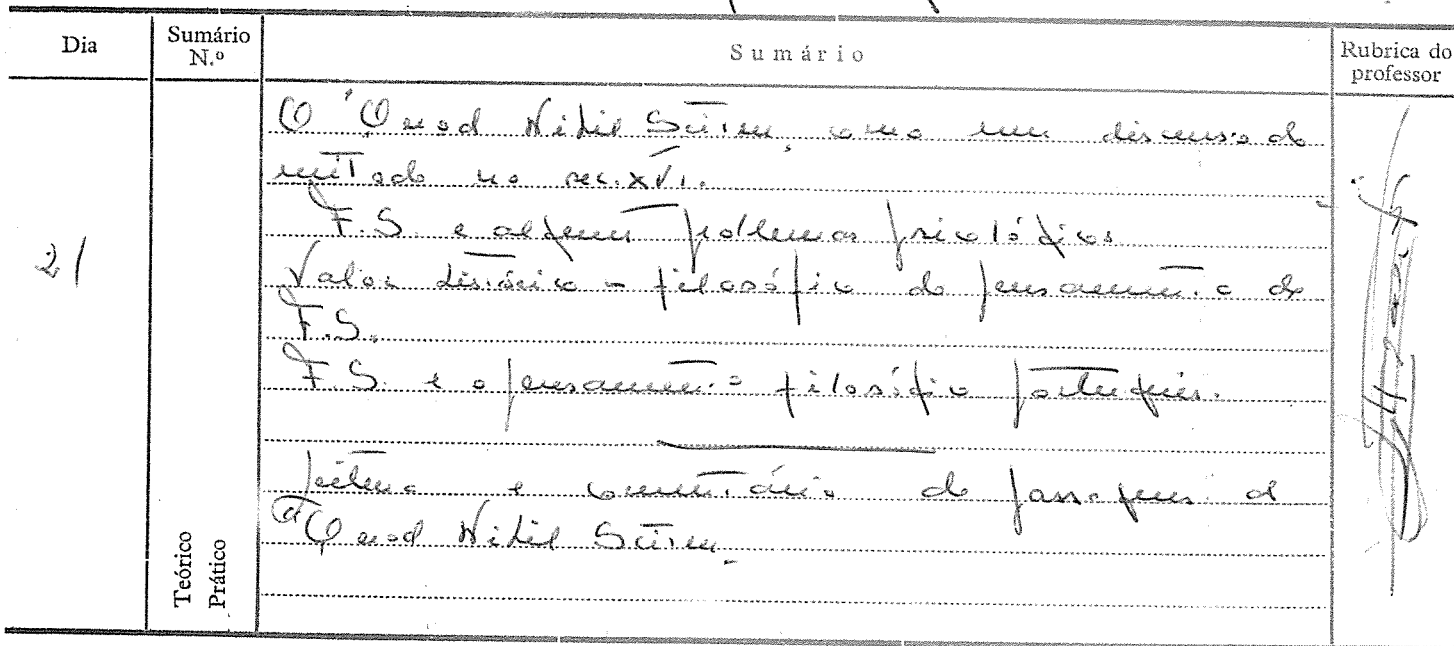 Dia
Sumário N.º
Sumário
Rubrica do professor
21
Teórico
Prático
O "Quod Nihil Scitur" como um discurso do
método no sec. XVI.
F.S. e alguns problemas psicológicos
Valor histórico-filosófico do pensamento de
F.S.
F.S. e o pensamento filosófico português.
Leitura e comentário de passagens d
"Quod Nihil Scitur"